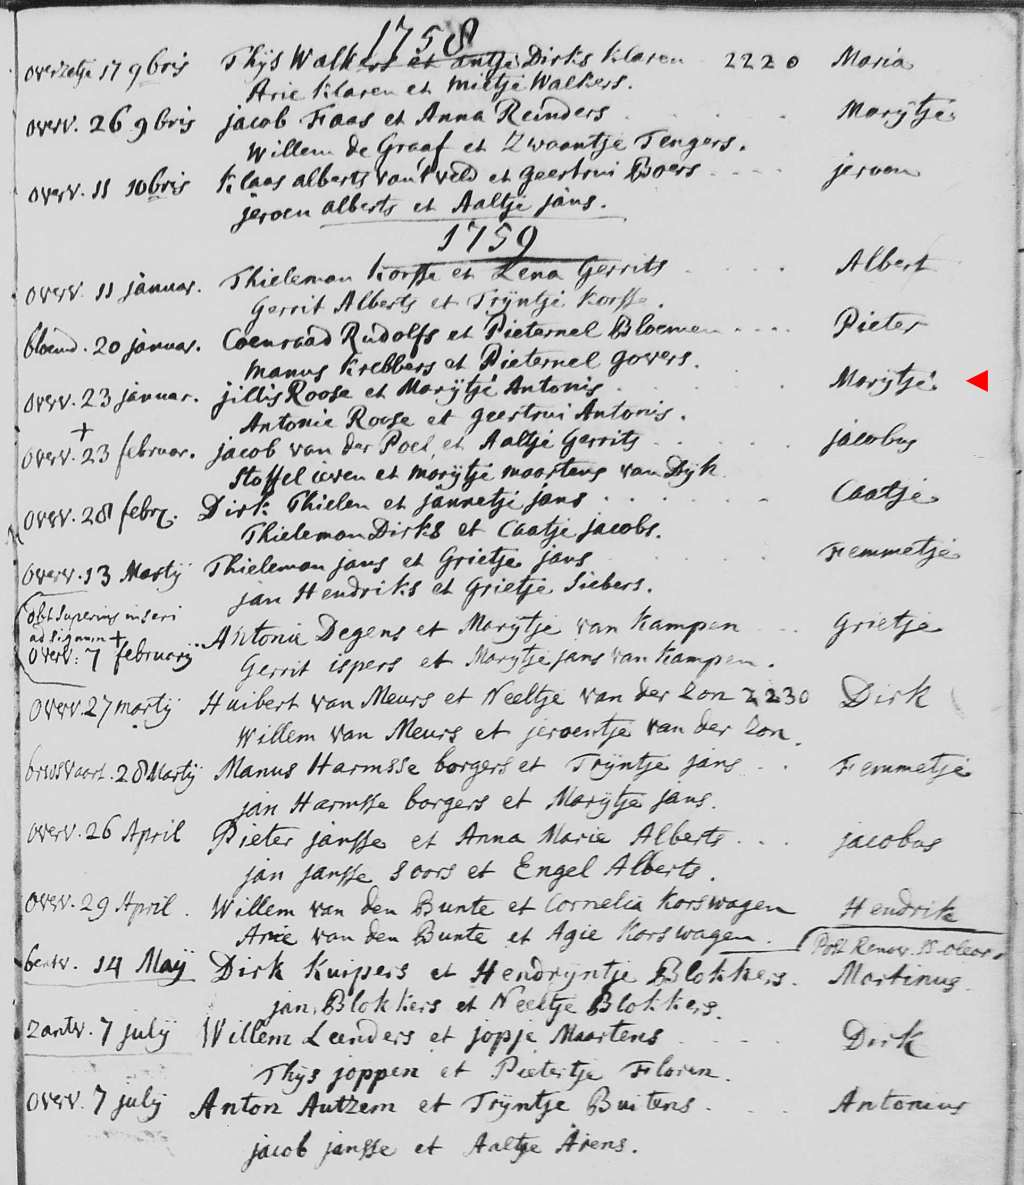 1758
overzetje 17 9bris Thijs Walkers et antje Dirks Klaren 2220 Maria
Arie Klaren et Mietje Walkers.
overv. 26 9bris jacob Haas et Anna Reinders Marijtje
Willem de Graaf et Zwaantje Tengers.
overv. 11 10bris Klaas alberts van't veld et geertrui Boers jeroen
jeroen alberts et Aaltje jans.
1759
overv. 11 januar. Thieleman Korsse et Lena Gerrits Albert
Gerrit Alberts et Trijntje Korsse.
bloemd. 20 januar. Coenraad Rudolfs et Pieternel Bloemen Pieter
manus Krebbers et Pieternel govers.
overv. 23 januar. jillis Roose et Marijtje Antonis Marijtje
Antonie Roose et geertrui Antonis.
+
overv. 23 februar. jacob van der Poel et Aaltje Gerrits jacobus
Stoffel ieven et marijtje maartens van Dijk
overv. 28 febr. Dirk Thielen et jannetje jans Caatje
Thieleman Dirks et Caatje jacobs.
overv. 13 Martij Thieleman jans et Grietje jans Femmetje
jan Hendriks et Grietje Siebers.
superius inseri
ad signum +
overv. 7 februarij Antonie Degens et Marijtje van Kampen Grietje
Gerrit ispers et Marijtje jans van Kampen.
overv. 27 martij Huibert van Meurs et Neeltje van der Zon 2230 Dirk
Willem van Meurs et jeroentje van der Zon.
28 Martij Manus Harmsse borgers et Trijntje jans Femmetje
jan Harmsse borgers et Marijtje jans.
overv. 26 April Pieter jansse et Anna Marie Alberts jacobus
jan jansse Soors et Engel Alberts.
overv. 29 April. Willem van den Bunte et Cornelia Korswagen Hendrik
Arie van den Bunte et Agie Korswagen.
Post Renov. SS. oleor.
14 Maij Dirk Kuipers et Hendrijntje Blokkers. Martinus.
jan Blokkers et Neeltje Blokkers.
zantv. 7 julij Willem Leenders et jopje Maartens Dirk
Thijs joppen et Pietertje Floren.
overv. 7 julij Anton Autzem et Trijntje Buitens Antonius
jacob jansse et Aaltje Arens.